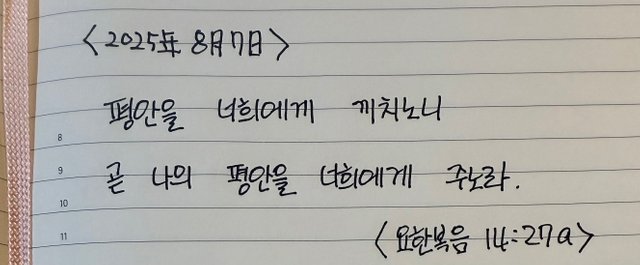 <2025年 8月 7日>
평안을 너희에게 끼치노니
8
9
곧 나의 평안을 너희에게 주노라.
10
11
<요한복음 14:27a>